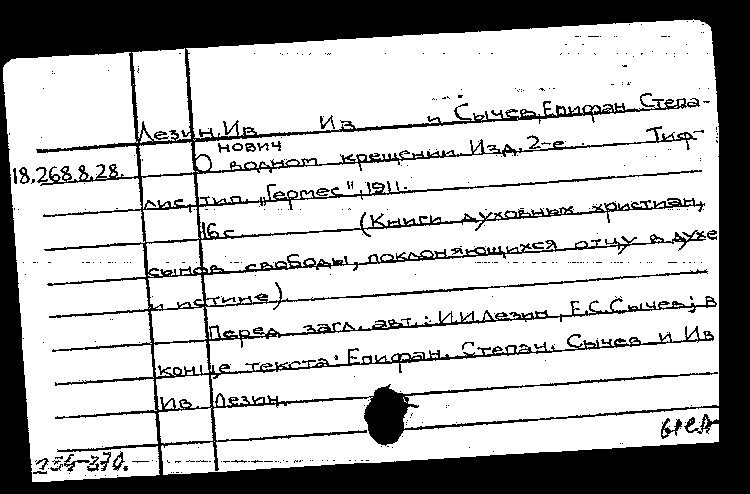 Лезин, Ив Ив и Сычев, Епифан Степа-
нович
18.268.8.28. О водном крещении. Изд. 2-е Тиф-
лис, тип. „Гермес", 1911.
16 с (Книги духовных христиан,
сынов свободы, поклоняющихся отцу в духе
и истине)
Перед загл. авт.: И.И.Лезин, Е.С.Сычев; в
конце текста: Епифан. Степан. Сычев и Ив
Ив Лезин.
234-370.